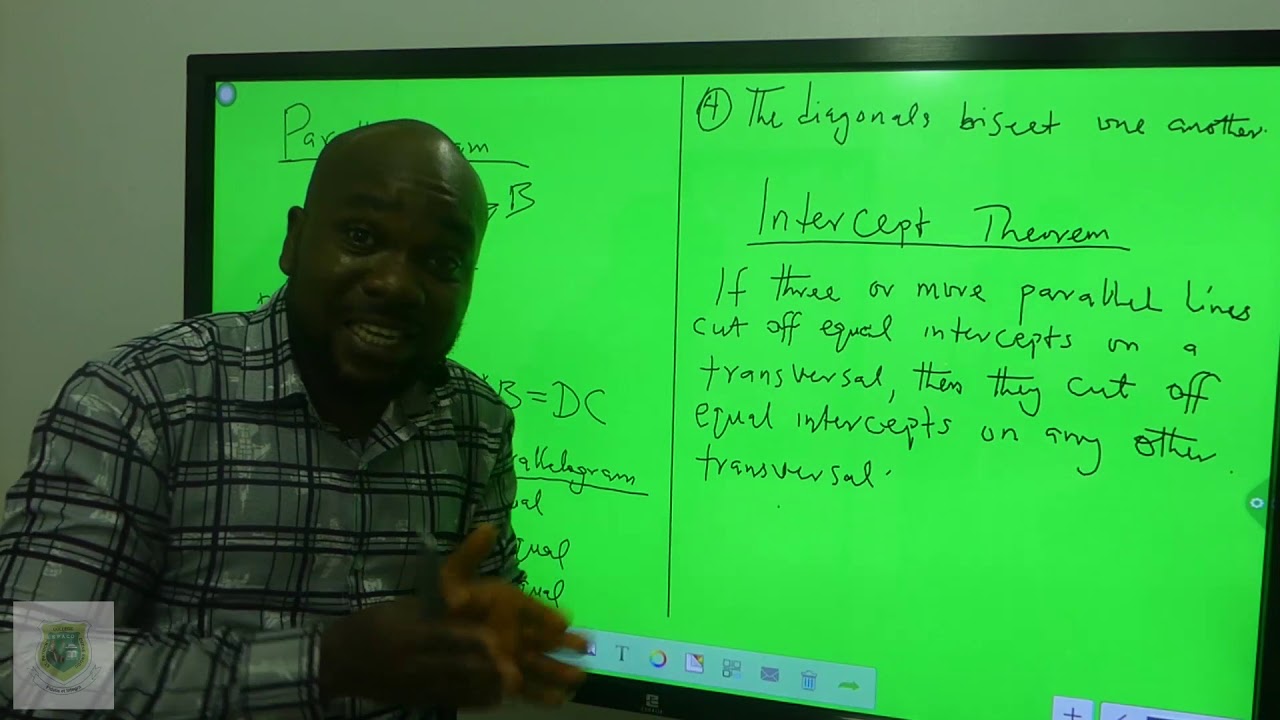 Par am
B
B = DC
allelogram
ual
qual
ual
④ The diagonals bisect one another.
Intercept Theorem
If three or more parallel lines
cut off equal intercepts on a
transversal, then they cut off
equal intercepts on any other
transversal.
T